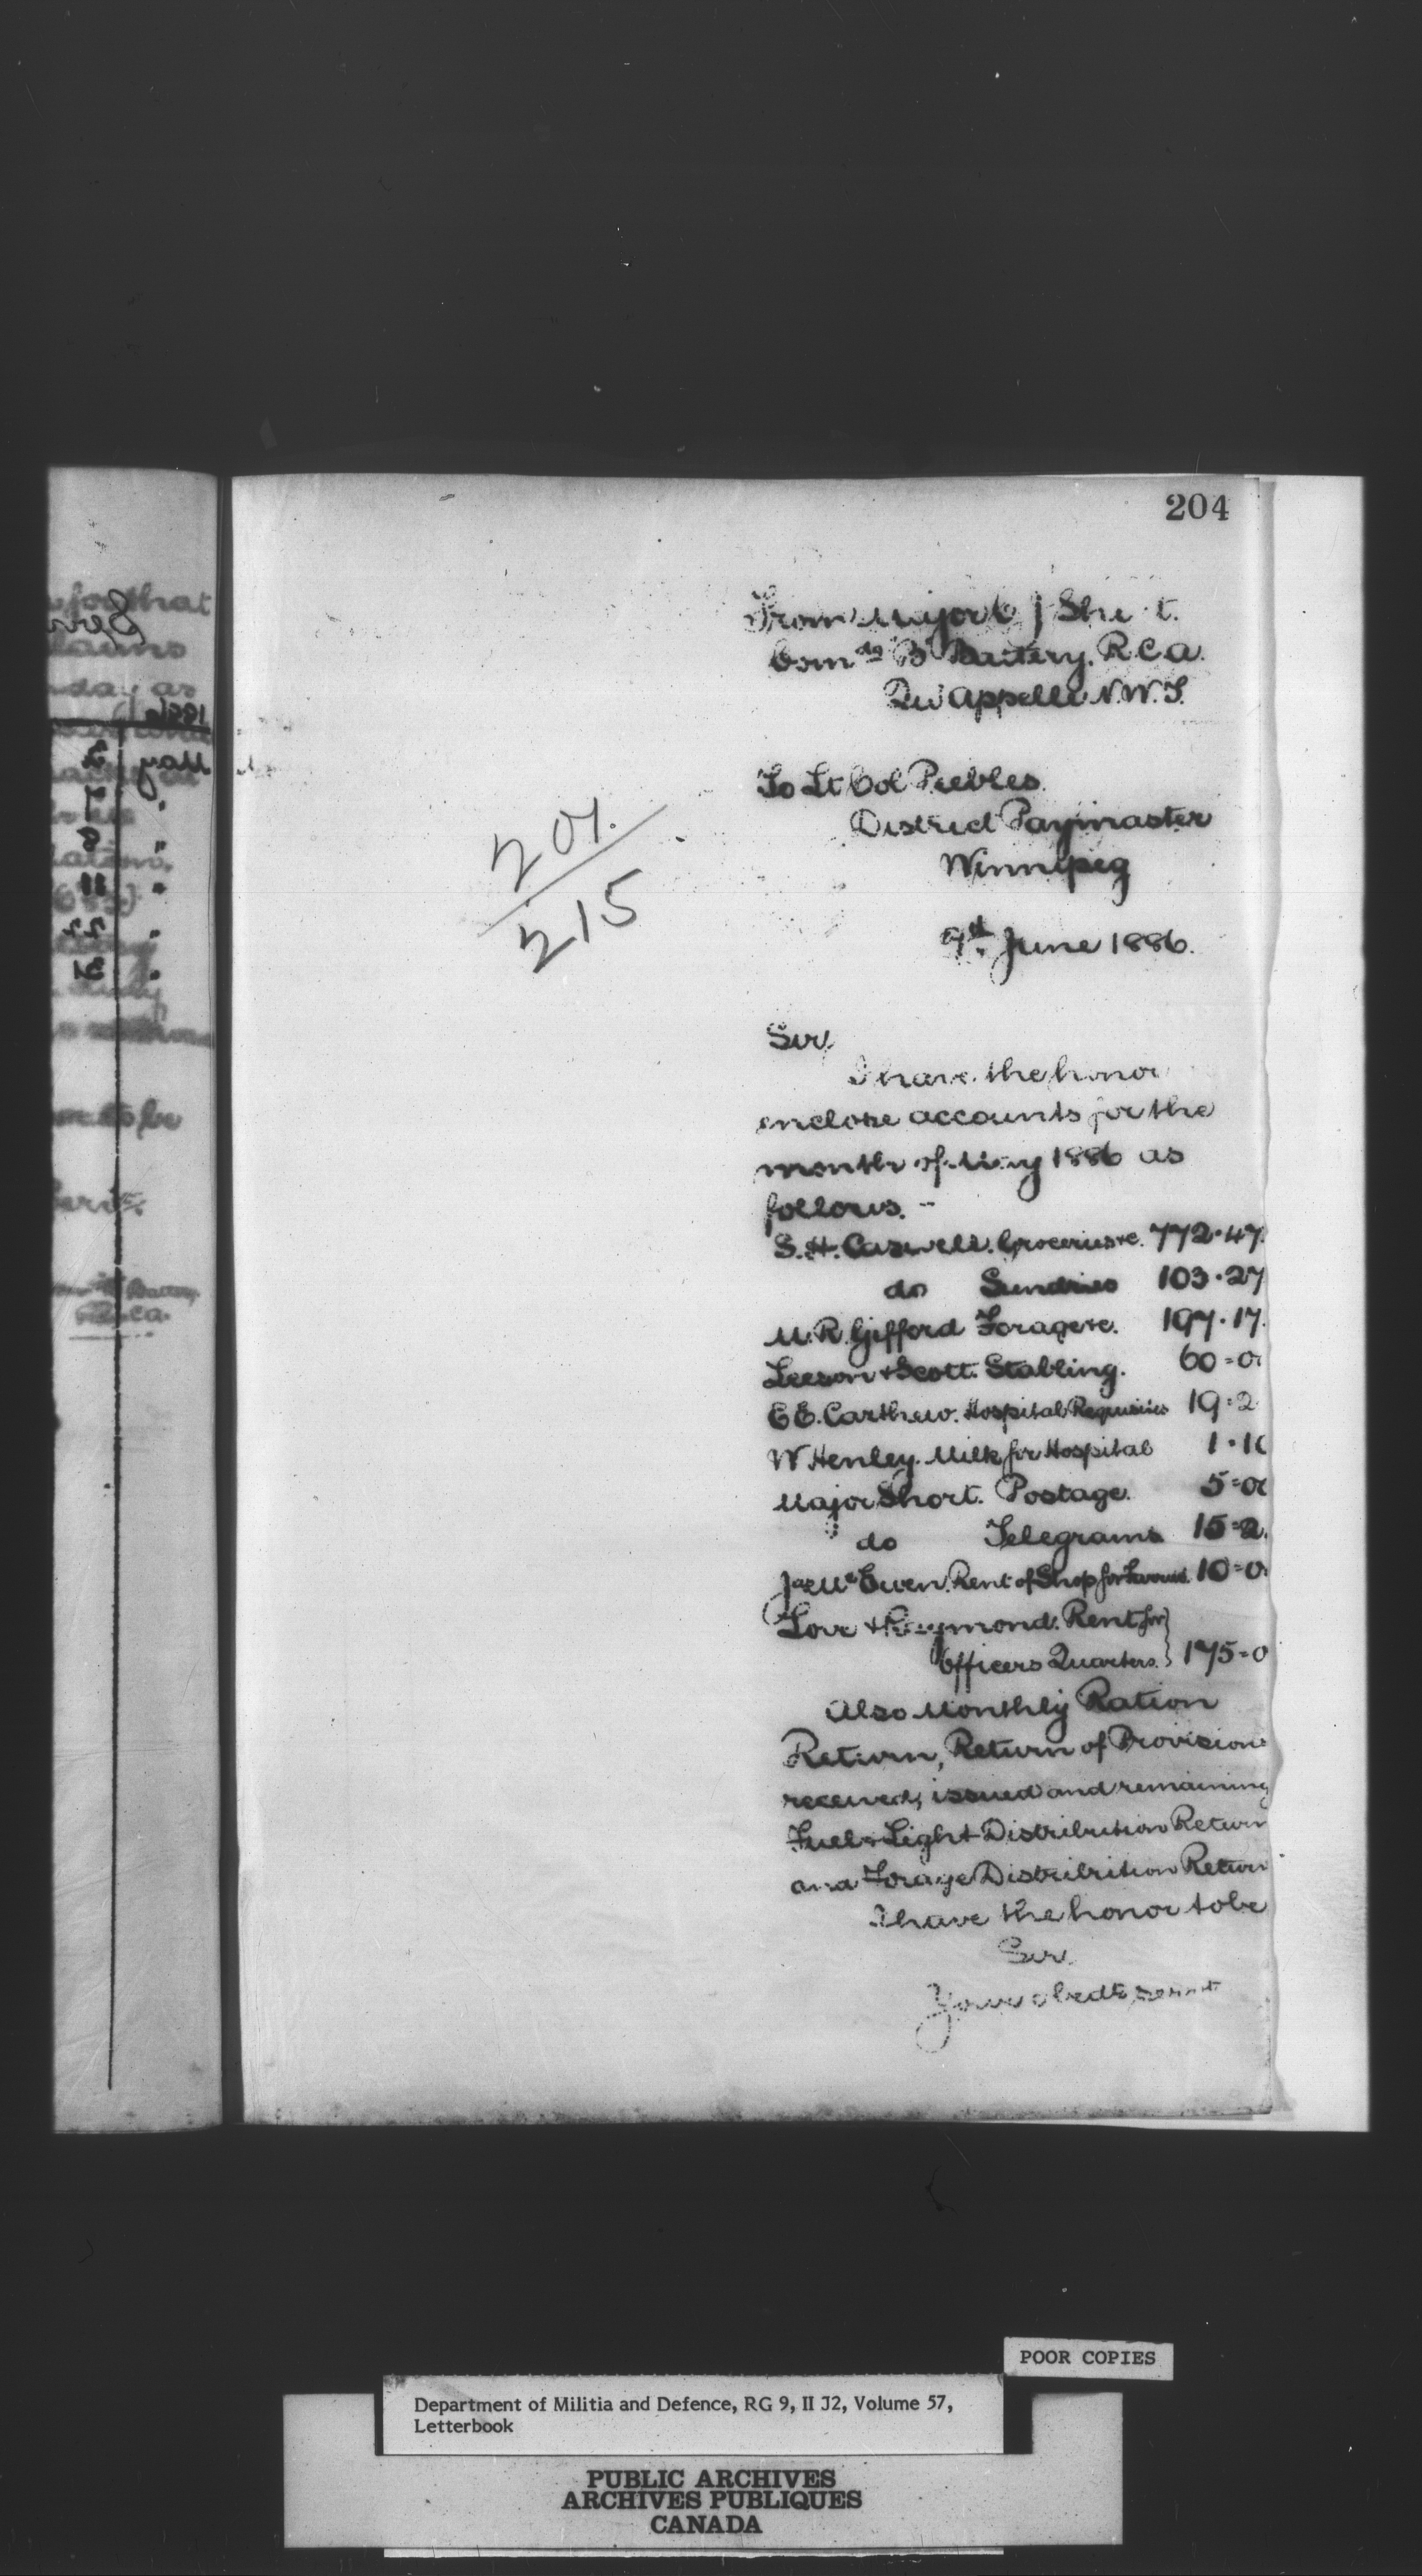 204
From Major C J Short
Comdg "B" Battery. R.C.A.
Qu'Appelle N.W.T.
To Lt Col Peebles
District Paymaster
Winnipeg
207.
215
9th June 1886.
Sir,
I have the honor
enclose accounts for the
month of May 1886 as
follows. -
S. H. Caswell. Groceries &c. 772.47.
do Sundries 103.27
M. R. Gifford Forage &c. 197.17.
Leeson & Scott. Stabling. 60=0
E E. Carthew. Hospital Requisites 19=2
W Henley. Milk for Hospital 1.1
Major Short. Postage. 5=0
do Telegrams 15=2
Jas McEwen. Rent of Shop for 10=0
Love & Raymond. Rent for
Officers Quarters. 175=0
Also Monthly Ration
Return, Return of Provisions
received, issued and remaining
Fuel & Light Distribution Return
and Forage Distribution Return
I have the honor to be
Sir.
Your obedt servt
for that
as
1886
May 2
8
11
22
31
to be
Battery
R.C.A.
POOR COPIES
Department of Militia and Defence, RG 9, II J2, Volume 57,
Letterbook
PUBLIC ARCHIVES
ARCHIVES PUBLIQUES
CANADA